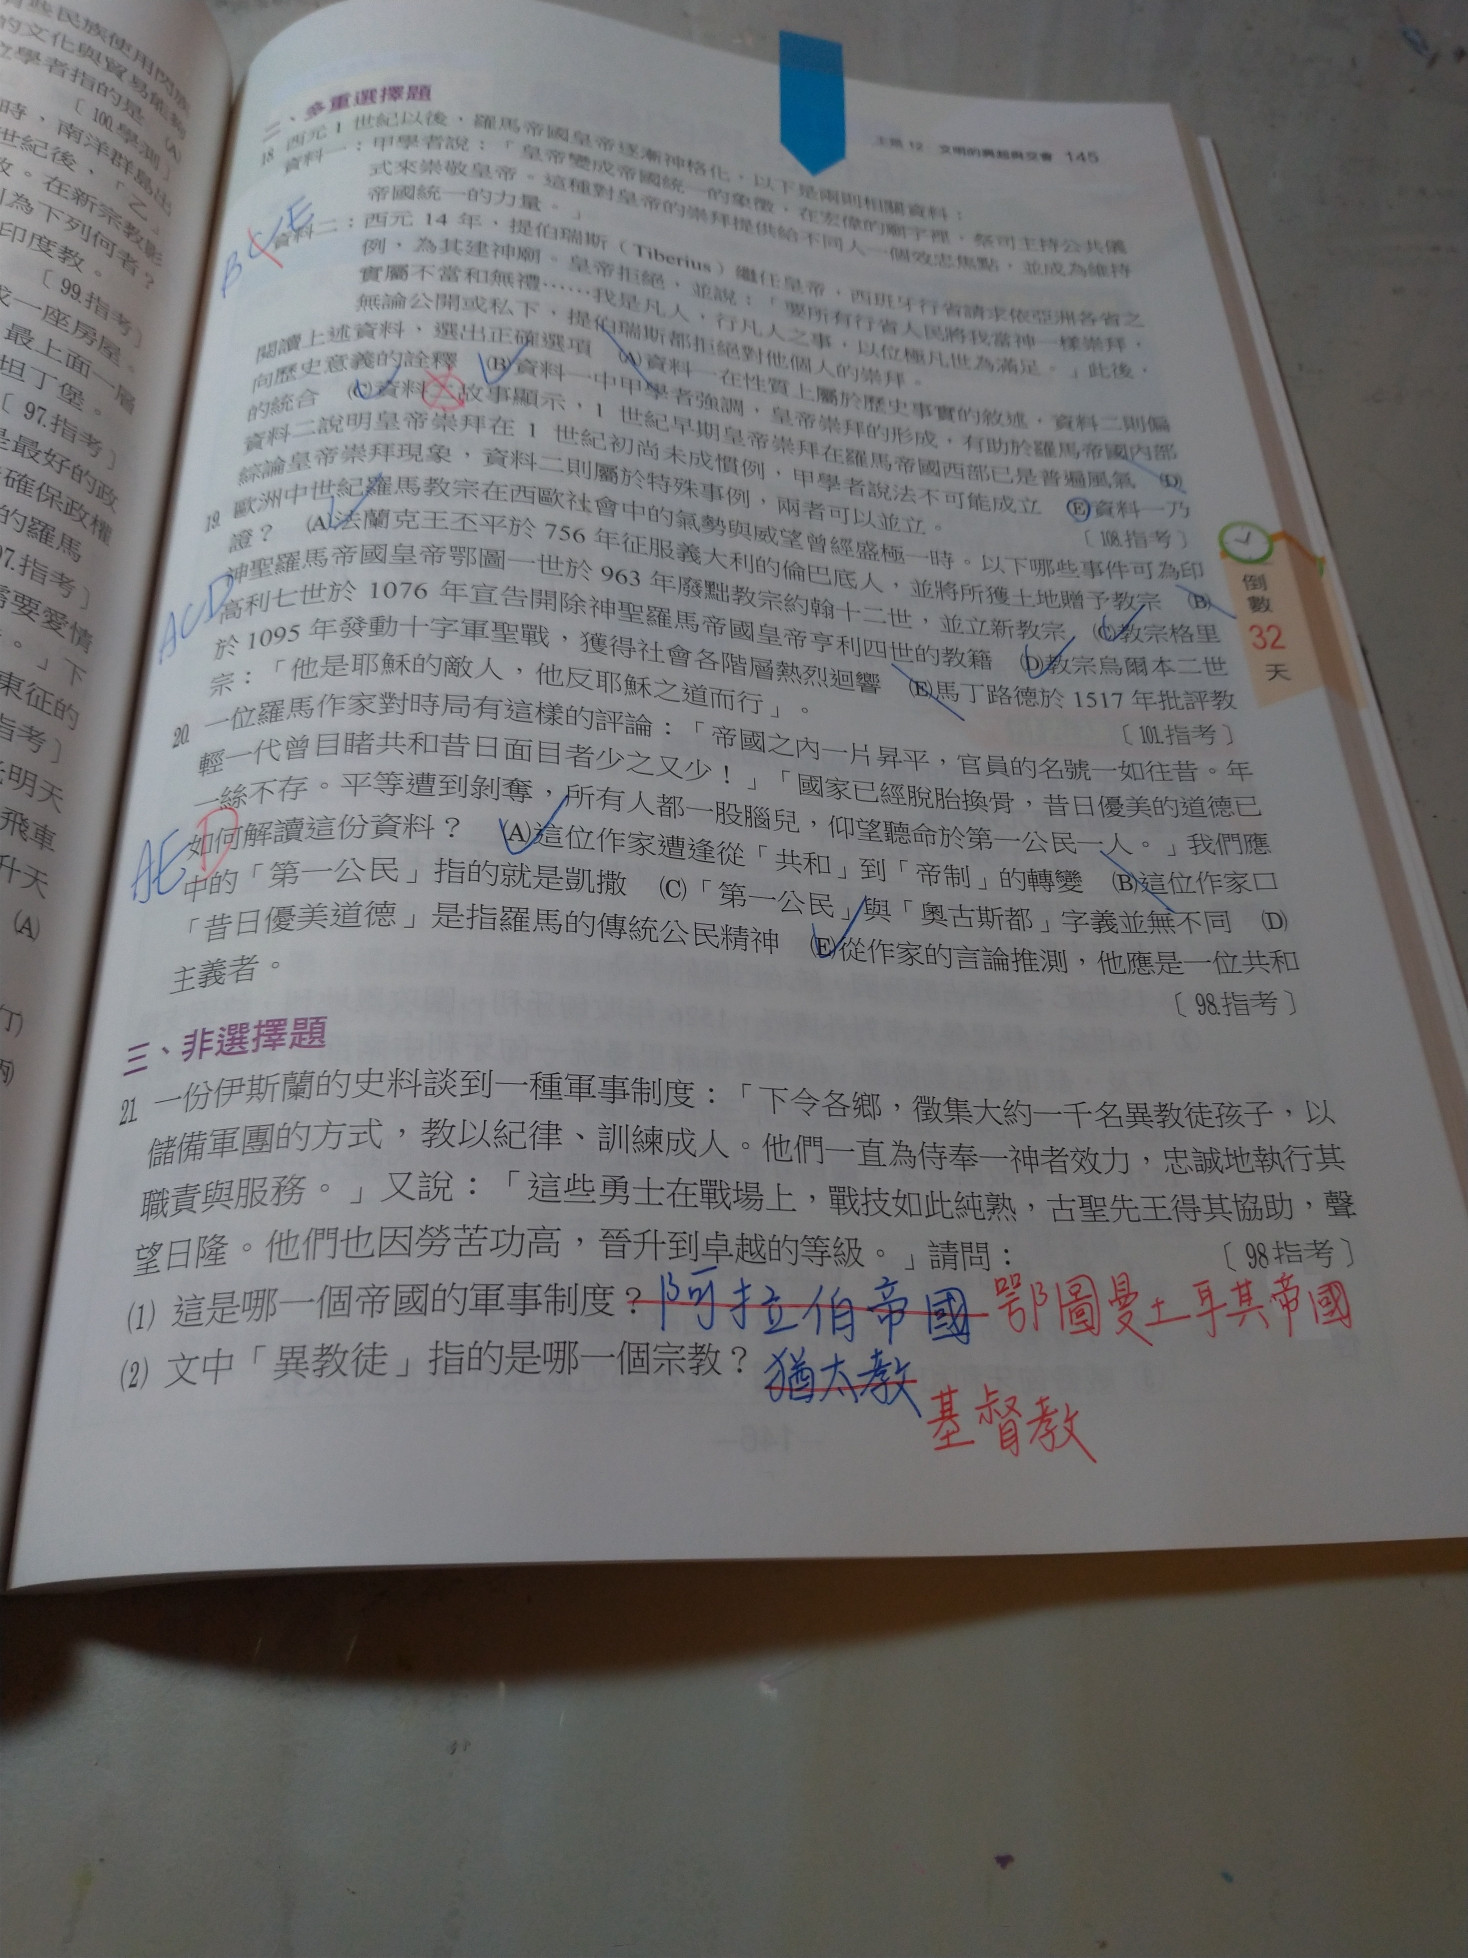 些民族使用閃族
的文化與貿易能夠
學者指的是 (A)
〔100.學測〕
時，南洋群島出
世紀後，「乙」
教。在新宗教影
為下列何者？
印度教。
〔99.指考〕
一座房屋。
最上面一層
坦丁堡。
〔97.指考〕
是最好的政
確保政權
的羅馬
97.指考〕
需要愛情
。」下
東征的
指考〕
明天
飛車
升天
(A)
主題 12 文明的興起與交會 145
二、多重選擇題
18. 西元 1 世紀以後，羅馬帝國皇帝逐漸神格化，以下是兩則相關資料：
資料一：甲學者說：「皇帝變成帝國統一的象徵，在宏偉的廟宇裡，祭司主持公共儀
式來崇敬皇帝。這種對皇帝的崇拜提供給不同人一個效忠焦點，並成為維持
帝國統一的力量。」
BCE
資料二：西元 14 年，提伯瑞斯（Tiberius）繼任皇帝，西班牙行省請求依亞洲各省之
例，為其建神廟。皇帝拒絕，並說：「要所有行省人民將我當神一樣崇拜，
實屬不當和無禮……我是凡人，行凡人之事，以位極凡世為滿足。」此後，
無論公開或私下，提伯瑞斯都拒絕對他個人的崇拜。
閱讀上述資料，選出正確選項 (A)資料一在性質上屬於歷史事實的敘述，資料二則偏
向歷史意義的詮釋 (B)資料一中甲學者強調，皇帝崇拜的形成，有助於羅馬帝國內部
的統合 (C)資料二故事顯示，1 世紀早期皇帝崇拜在羅馬帝國西部已是普遍風氣 (D)
資料二說明皇帝崇拜在 1 世紀初尚未成慣例，甲學者說法不可能成立 (E)資料一乃
綜論皇帝崇拜現象，資料二則屬於特殊事例，兩者可以並立。
〔108.指考〕
19. 歐洲中世紀羅馬教宗在西歐社會中的氣勢與威望曾經盛極一時。以下哪些事件可為印
證？ (A)法蘭克王丕平於 756 年征服義大利的倫巴底人，並將所獲土地贈予教宗 (B)
神聖羅馬帝國皇帝鄂圖一世於 963 年廢黜教宗約翰十二世，並立新教宗 (C)教宗格里
ACD
高利七世於 1076 年宣告開除神聖羅馬帝國皇帝亨利四世的教籍 (D)教宗烏爾本二世
於 1095 年發動十字軍聖戰，獲得社會各階層熱烈迴響 (E)馬丁路德於 1517 年批評教
宗：「他是耶穌的敵人，他反耶穌之道而行」。
〔101.指考〕
20. 一位羅馬作家對時局有這樣的評論：「帝國之內一片昇平，官員的名號一如往昔。年
輕一代曾目睹共和昔日面目者少之又少！」「國家已經脫胎換骨，昔日優美的道德已
一絲不存。平等遭到剝奪，所有人都一股腦兒，仰望聽命於第一公民一人。」我們應
AED
如何解讀這份資料？ (A)這位作家遭逢從「共和」到「帝制」的轉變 (B)這位作家口
中的「第一公民」指的就是凱撒 (C)「第一公民」與「奧古斯都」字義並無不同 (D)
「昔日優美道德」是指羅馬的傳統公民精神 (E)從作家的言論推測，他應是一位共和
主義者。
〔98.指考〕
倒數
32
天
三、非選擇題
21. 一份伊斯蘭的史料談到一種軍事制度：「下令各鄉，徵集大約一千名異教徒孩子，以
儲備軍團的方式，教以紀律、訓練成人。他們一直為侍奉一神者效力，忠誠地執行其
職責與服務。」又說：「這些勇士在戰場上，戰技如此純熟，古聖先王得其協助，聲
望日隆。他們也因勞苦功高，晉升到卓越的等級。」請問：
〔98指考〕
(1) 這是哪一個帝國的軍事制度？阿拉伯帝國 鄂圖曼土耳其帝國
(2) 文中「異教徒」指的是哪一個宗教？猶太教
基督教